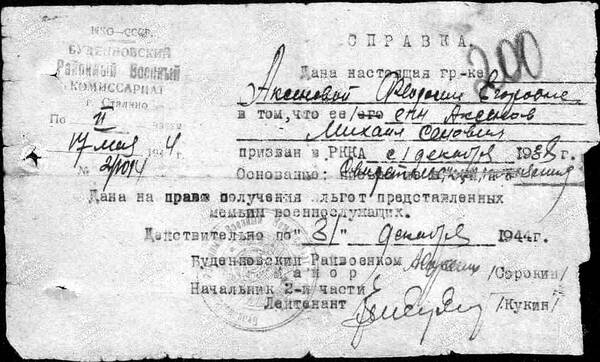 НКО-СССР.
БУДЕННОВСКИЙ
Районный Военный
КОМИССАРИАТ
г. Сталино
По II части
17 мая 1944
№
200
СПРАВКА.
Дана настоящая гр-ке
Аксеновой Егоровне
в том, что ее/его сын Аксенов
Михаил
призван в РККА с 1 декабря 1938г
Основание:
Дана на право получения льгот представленных
семьям военнослужащих.
Действительно по "31" декабря 1944г.
Буденновский Райвоенком
Майор /Сорокин/
Начальник 2-й части
Лейтенант /Кукин/